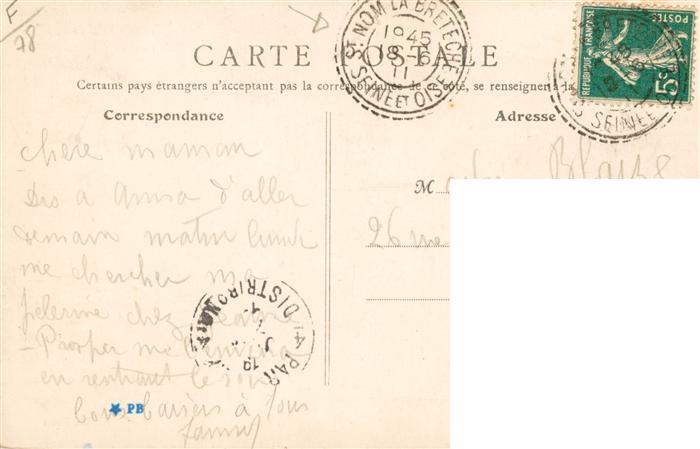 F
78
CARTE POSTALE
Certains pays étrangers n'acceptant pas la correspondance de ce côté, se renseigner à la
Correspondance
Adresse
chère maman
Dis a Anna d'aller
demain matin lundi
me chercher ma
pelerine chez
-Prosper me
en rentrant le soir
bons baisers à tous
fanny
M
26 rue
St NOM LA BRETÈCHE
1945
18-6
11
SEINE ET OISE
REPUBLIQUE FRANÇAISE
POSTES
5c
SEINE ET O
PARIS
DISTRIBUTION
PB